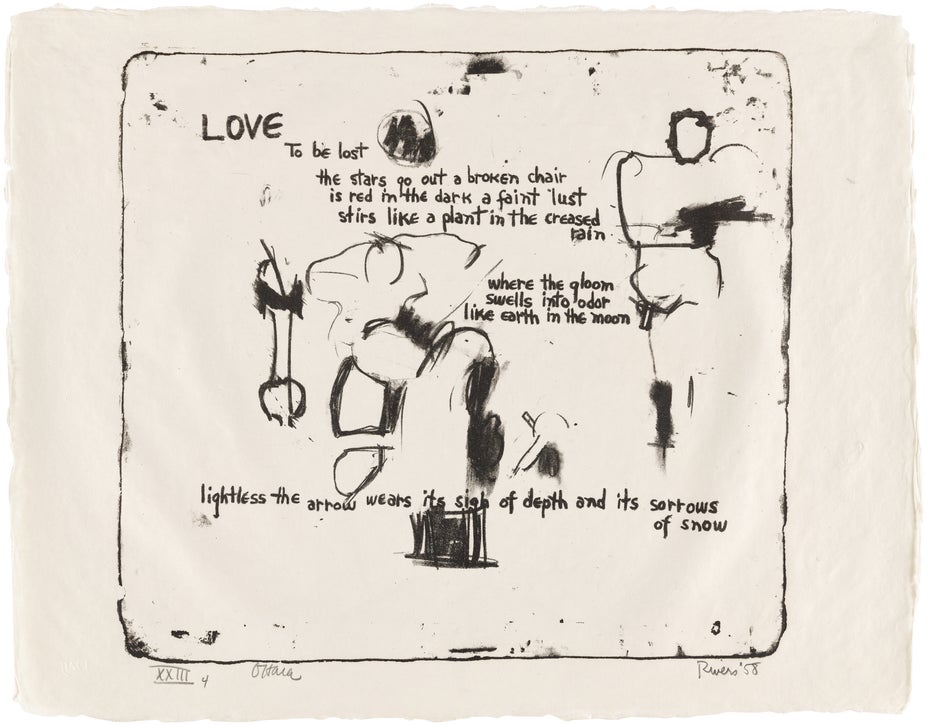 LOVE
To be lost
the stars go out a broken chair
is red in the dark a faint lust
stirs like a plant in the creased
rain
where the gloom
swells into odor
like earth in the moon
lightless the arrow wears its sigh of depth and its sorrows
of snow
XXIII 4 O'Hara Rivers '58